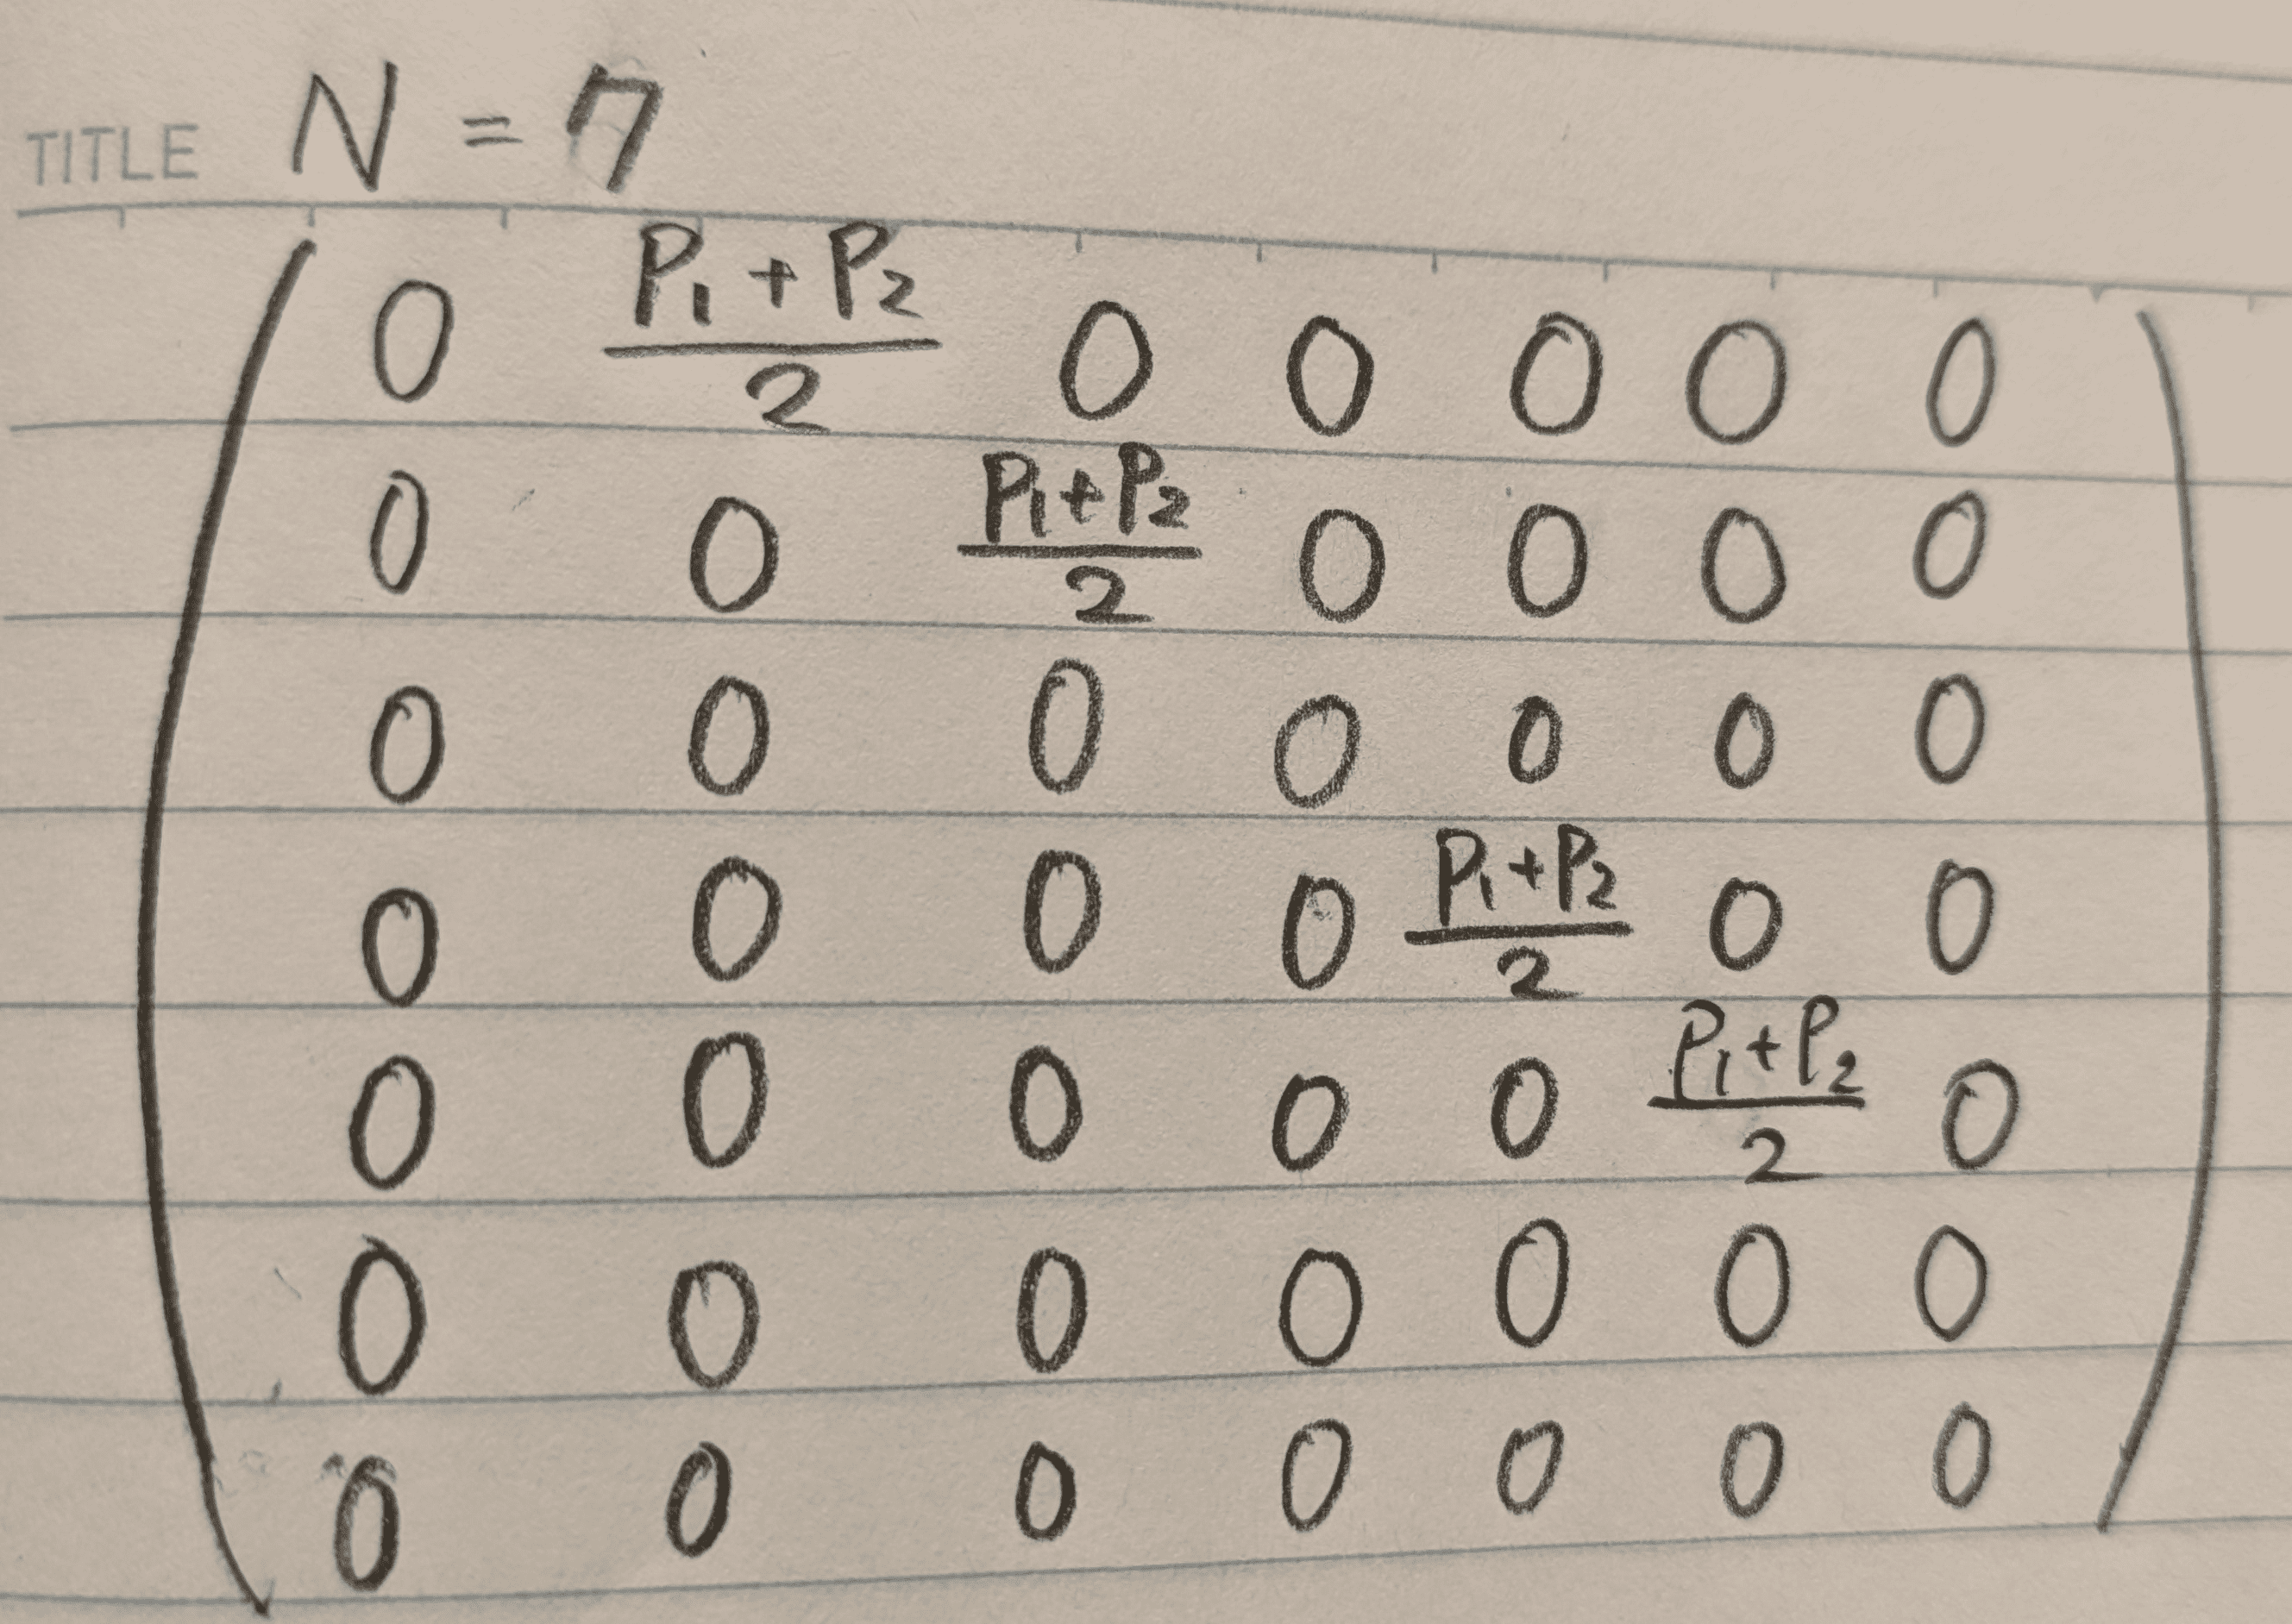 TITLE N = 7
0 (P₁ + P₂)/2 0 0 0 0 0
0 0 (P₁+P₂)/2 0 0 0 0
0 0 0 0 0 0 0
0 0 0 0 (P₁+P₂)/2 0 0
0 0 0 0 0 (P₁+P₂)/2 0
0 0 0 0 0 0 0
0 0 0 0 0 0 0